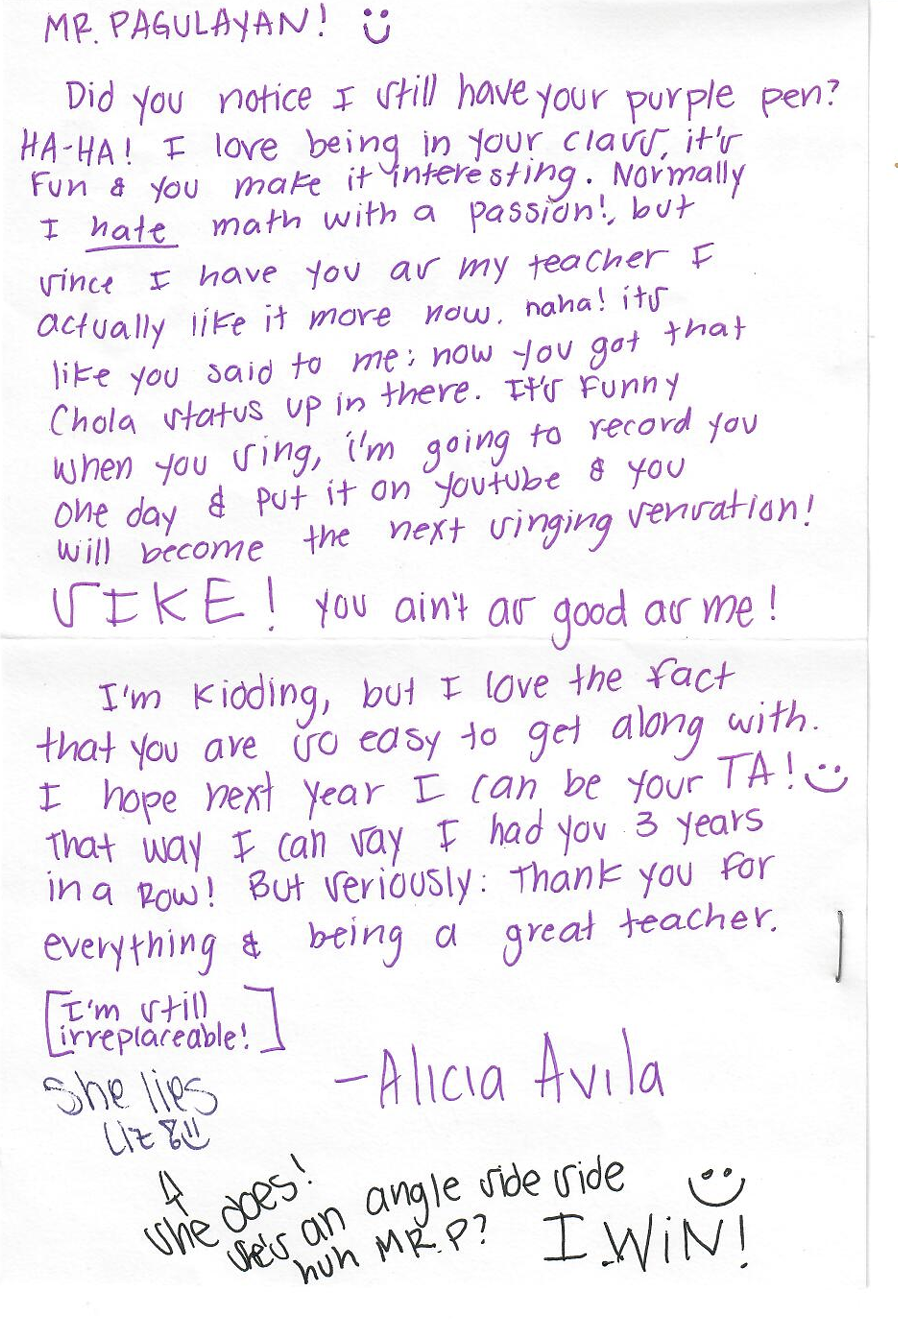 MR. PAGULAYAN! :)
Did you notice I still have your purple pen?
HA-HA! I love being in your class, it's
fun & you make it interesting. Normally
I hate math with a passion!, but
since I have you as my teacher I
actually like it more now. haha! its
like you said to me: now you got that
Chola status up in there. It's funny
when you sing, i'm going to record you
one day & put it on youtube & you
will become the next singing sensation!
SIKE! you ain't as good as me!
I'm kidding, but I love the fact
that you are so easy to get along with.
I hope next year I can be your TA! :)
That way I can say I had you 3 years
in a Row! But seriously: Thank you for
everything & being a great teacher.
[I'm still
irreplaceable!]
-Alicia Avila
she lies
Liz
she does!
she's an angle side side
huh MR. P?
I WiN! :)